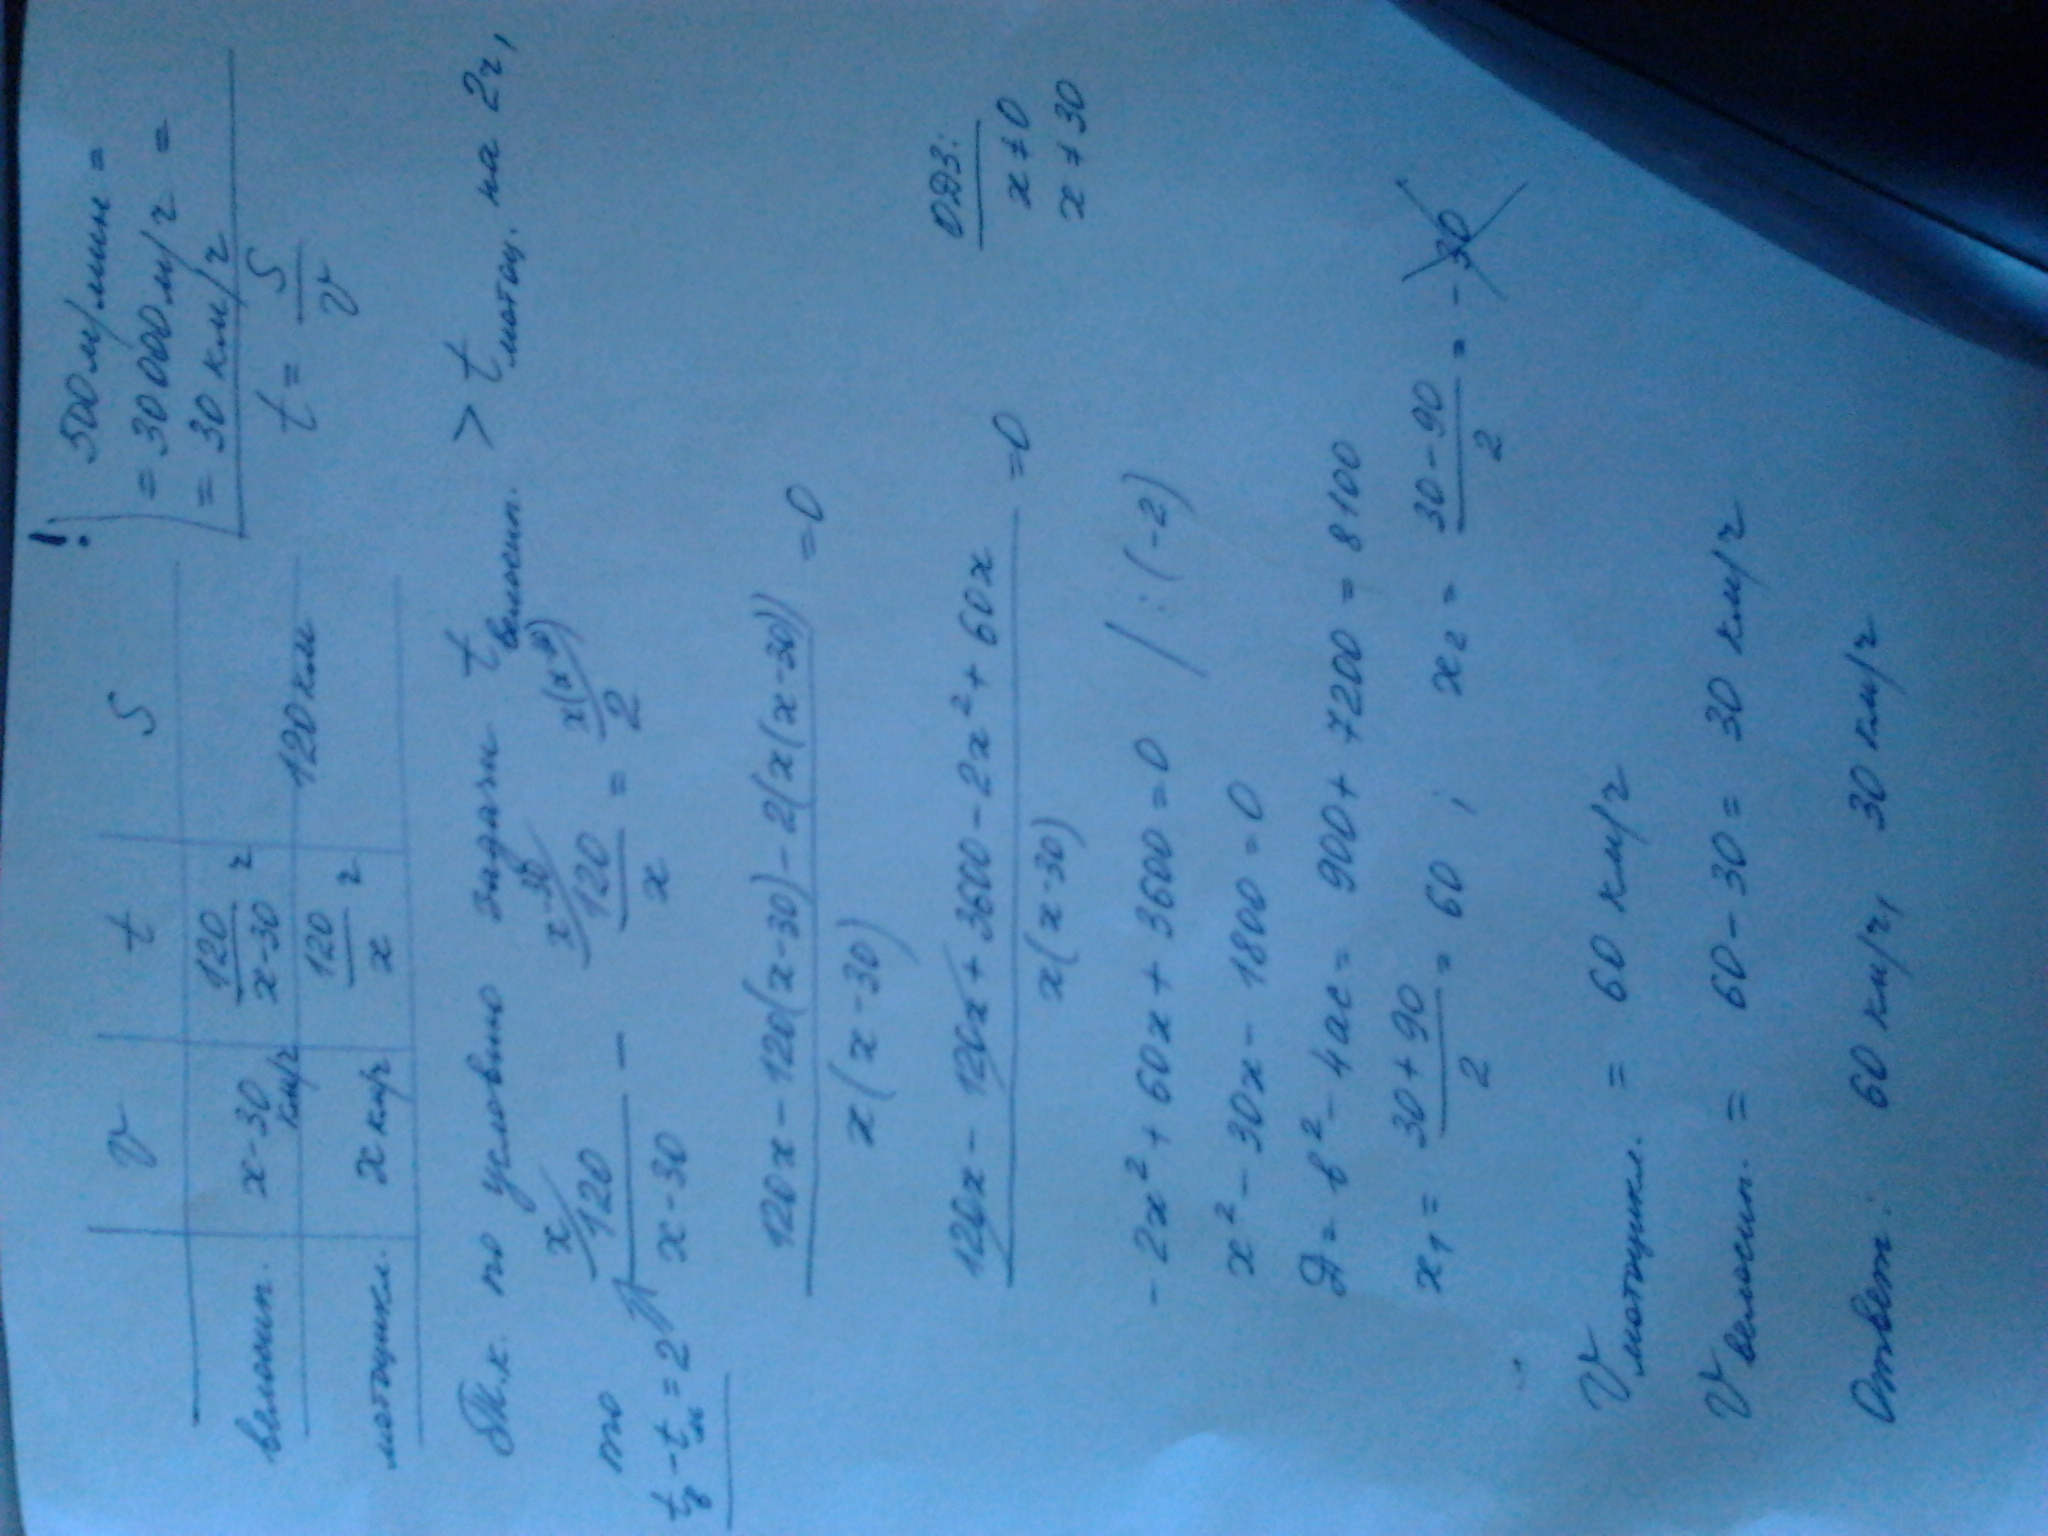 v t S
велосип. x-30 км/ч 120/(x-30) ч
120 км
мотоцикл. x км/ч 120/x ч
! 500 м/мин =
= 30000 м/ч =
= 30 км/ч
t = S/v
Т.к. по условию задачи t велосип. > t мотоц. на 2ч,
то x/ 120/(x-30) - x-30/ 120/x = x(x-30)/ 2
tв - tм = 2
(120x - 120(x-30) - 2(x(x-30)))/(x(x-30)) = 0
(120x - 120x + 3600 - 2x² + 60x)/(x(x-30)) = 0
ОДЗ:
x ≠ 0
x ≠ 30
-2x² + 60x + 3600 = 0 / : (-2)
x² - 30x - 1800 = 0
D = b² - 4ac = 900 + 7200 = 8100
x₁ = (30 + 90)/2 = 60 ; x₂ = (30 - 90)/2 = -30
V мотоцикл. = 60 км/ч
V велосип. = 60 - 30 = 30 км/ч
Ответ: 60 км/ч, 30 км/ч